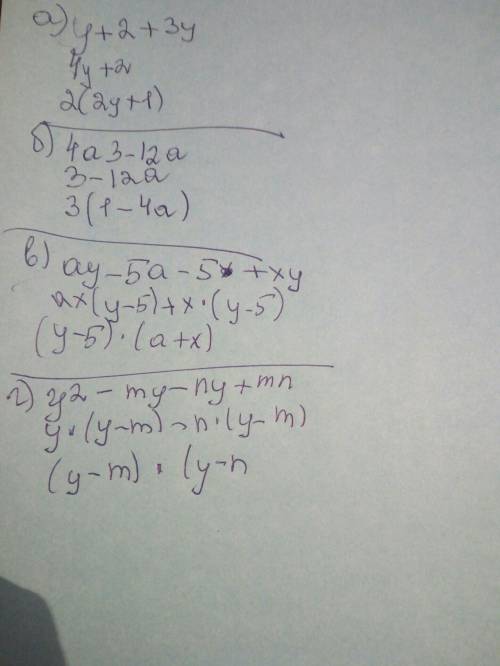 а) y+2+3y
4y+2
2(2y+1)
б) 4a3-12a
3-12a
3(1-4a)
в) ay-5a-5x+xy
ax(y-5)+x·(y-5)
(y-5)·(a+x)
г) y2-my-ny+mn
y·(y-m)-n·(y-m)
(y-m)·(y-n